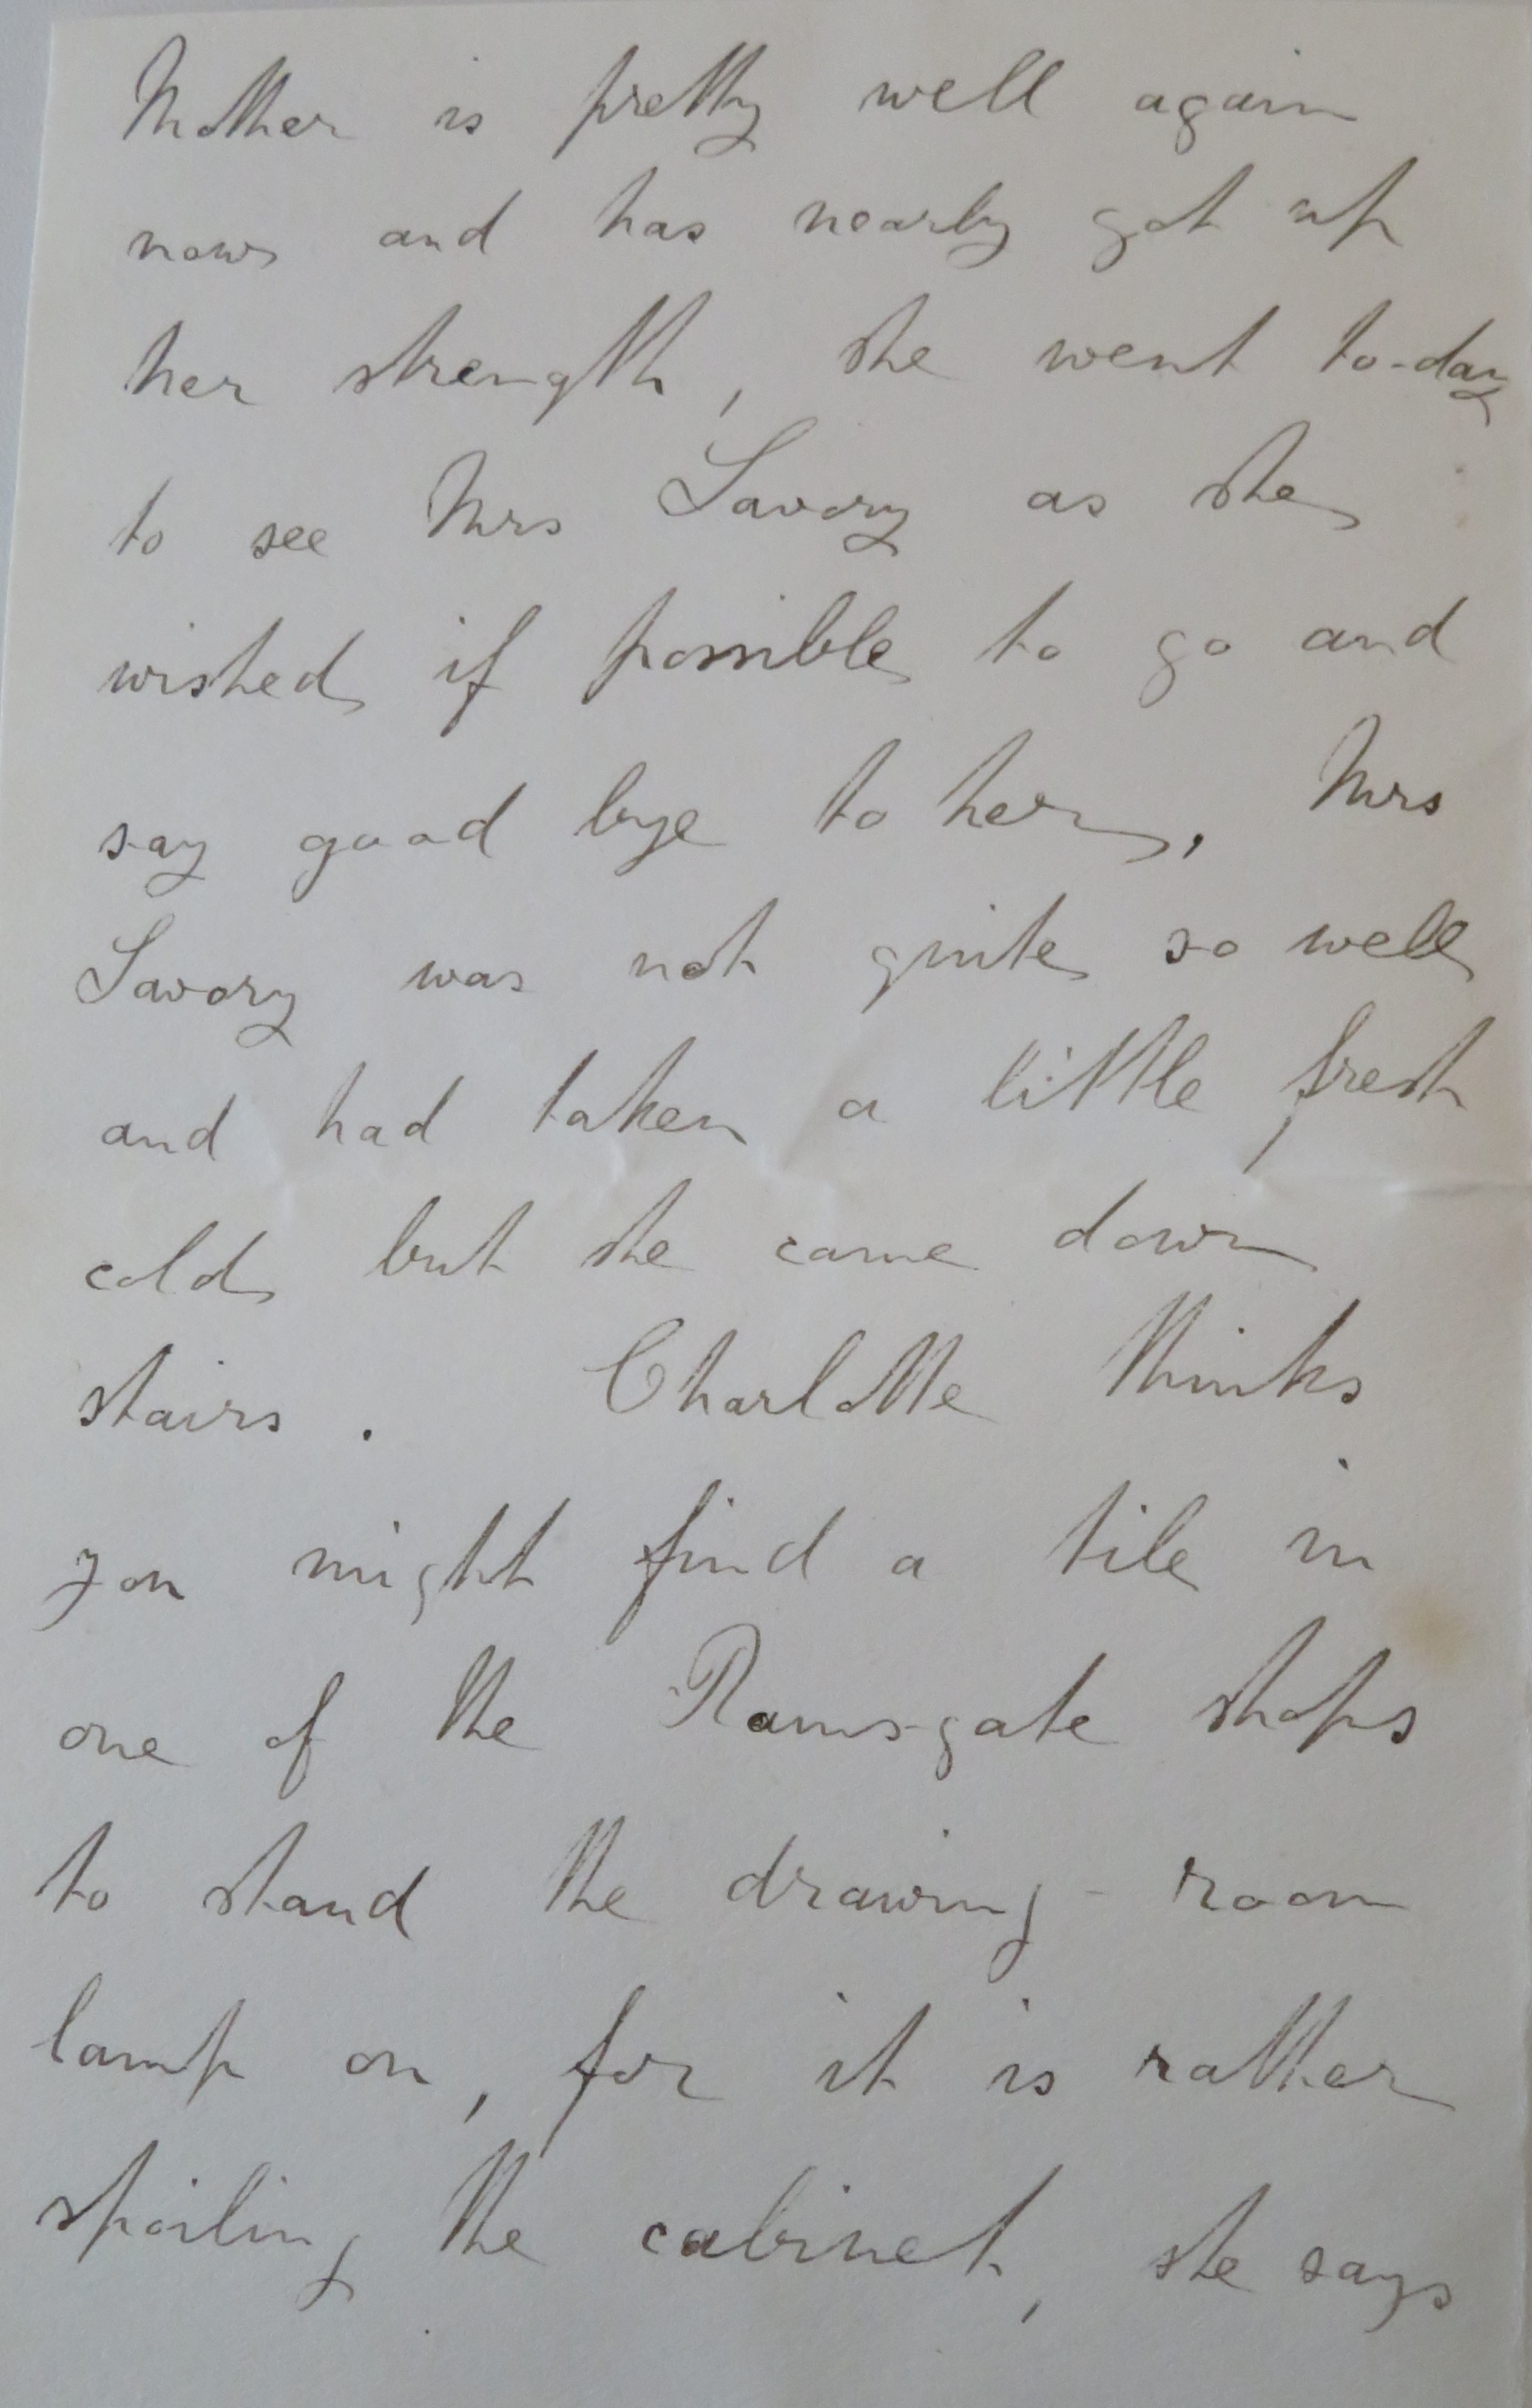 Mother is pretty well again
now and has nearly got up
her strength, she went to-day
to see Mrs Savory as she
wished if possible to go and
say good bye to her, Mrs
Savory was not quite so well
and had taken a little fresh
cold but she came down
stairs. Charlotte thinks
you might find a tile in
one of the Ramsgate shops
to stand the drawing-room
lamp on, for it is rather
spoiling the cabinet, she says